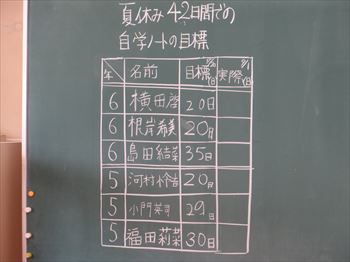 夏休み42日間での
自学ノートの目標
年 名前 目標 実際
6 横田 20日
6 根岸希美 20日
6 島田結菜 35日
5 河村 20日
5 小門英司 29日
5 福田莉菜 30日